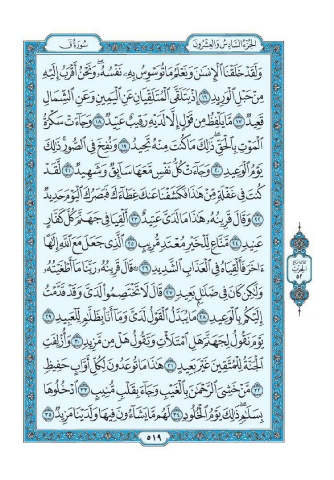 الجزء السادس والعشرون
سورة ق
ولقد خلقنا الإنسان ونعلم ما توسوس به نفسه ونحن أقرب إليه
من حبل الوريد ١٦ إذ يتلقى المتلقيان عن اليمين وعن الشمال
قعيد ١٧ ما يلفظ من قول إلا لديه رقيب عتيد ١٨ وجاءت سكرة
الموت بالحق ذلك ما كنت منه تحيد ١٩ ونفخ في الصور ذلك
يوم الوعيد ٢٠ وجاءت كل نفس معها سائق وشهيد ٢١ لقد
كنت في غفلة من هذا فكشفنا عنك غطاءك فبصرك اليوم حديد
٢٢ وقال قرينه هذا ما لدي عتيد ٢٣ ألقيا في جهنم كل كفار
عنيد ٢٤ مناع للخير معتد مريب ٢٥ الذي جعل مع الله إلها
ءاخر فألقياه في العذاب الشديد ٢٦ قال قرينه ربنا ما أطغيته
ولكن كان في ضلال بعيد ٢٧ قال لا تختصموا لدي وقد قدمت
إليكم بالوعيد ٢٨ ما يبدل القول لدي وما أنا بظلام للعبيد ٢٩
يوم نقول لجهنم هل امتلأت وتقول هل من مزيد ٣٠ وأزلفت
الجنة للمتقين غير بعيد ٣١ هذا ما توعدون لكل أواب حفيظ
٣٢ من خشي الرحمن بالغيب وجاء بقلب منيب ٣٣ ادخلوها
بسلام ذلك يوم الخلود ٣٤ لهم ما يشاءون فيها ولدينا مزيد ٣٥
الحزب
٥٢
٥١٩